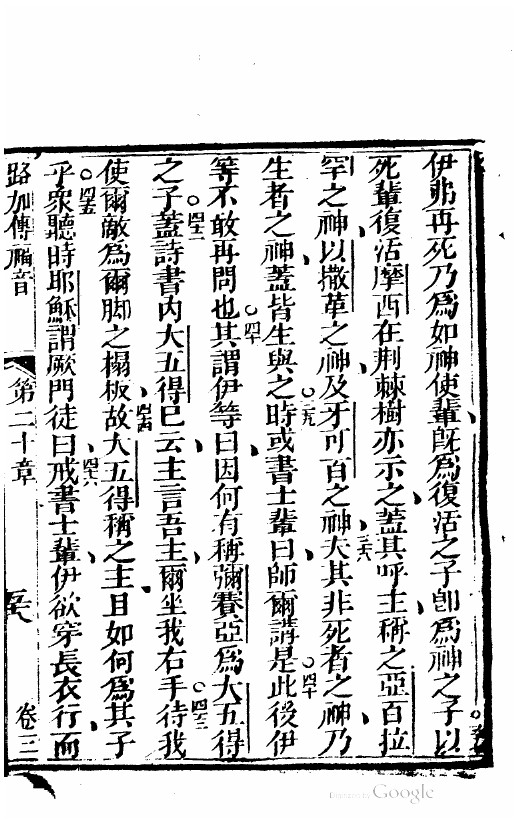 伊弗再死乃為如神使輩既為復活之子卽為神之子以
死輩復活摩西在荆棘樹亦示之蓋其呼主稱之亞百拉
罕之神以撒革之神及牙可百之神夫其非死者之神乃
生者之神蓋皆生與之時或書士輩曰師爾講是此後伊
等不敢再問也其謂伊等曰因何有稱彌賽亞為大五得
之子蓋詩書內大五得已云主言吾主爾坐我右手待我
使爾敵為爾脚之榻板故大五得稱之主且如何為其子
乎衆聽時耶穌謂厥門徒曰戒書士輩伊欲穿長衣行而
路加傳福音 第二十章 卷三
Google